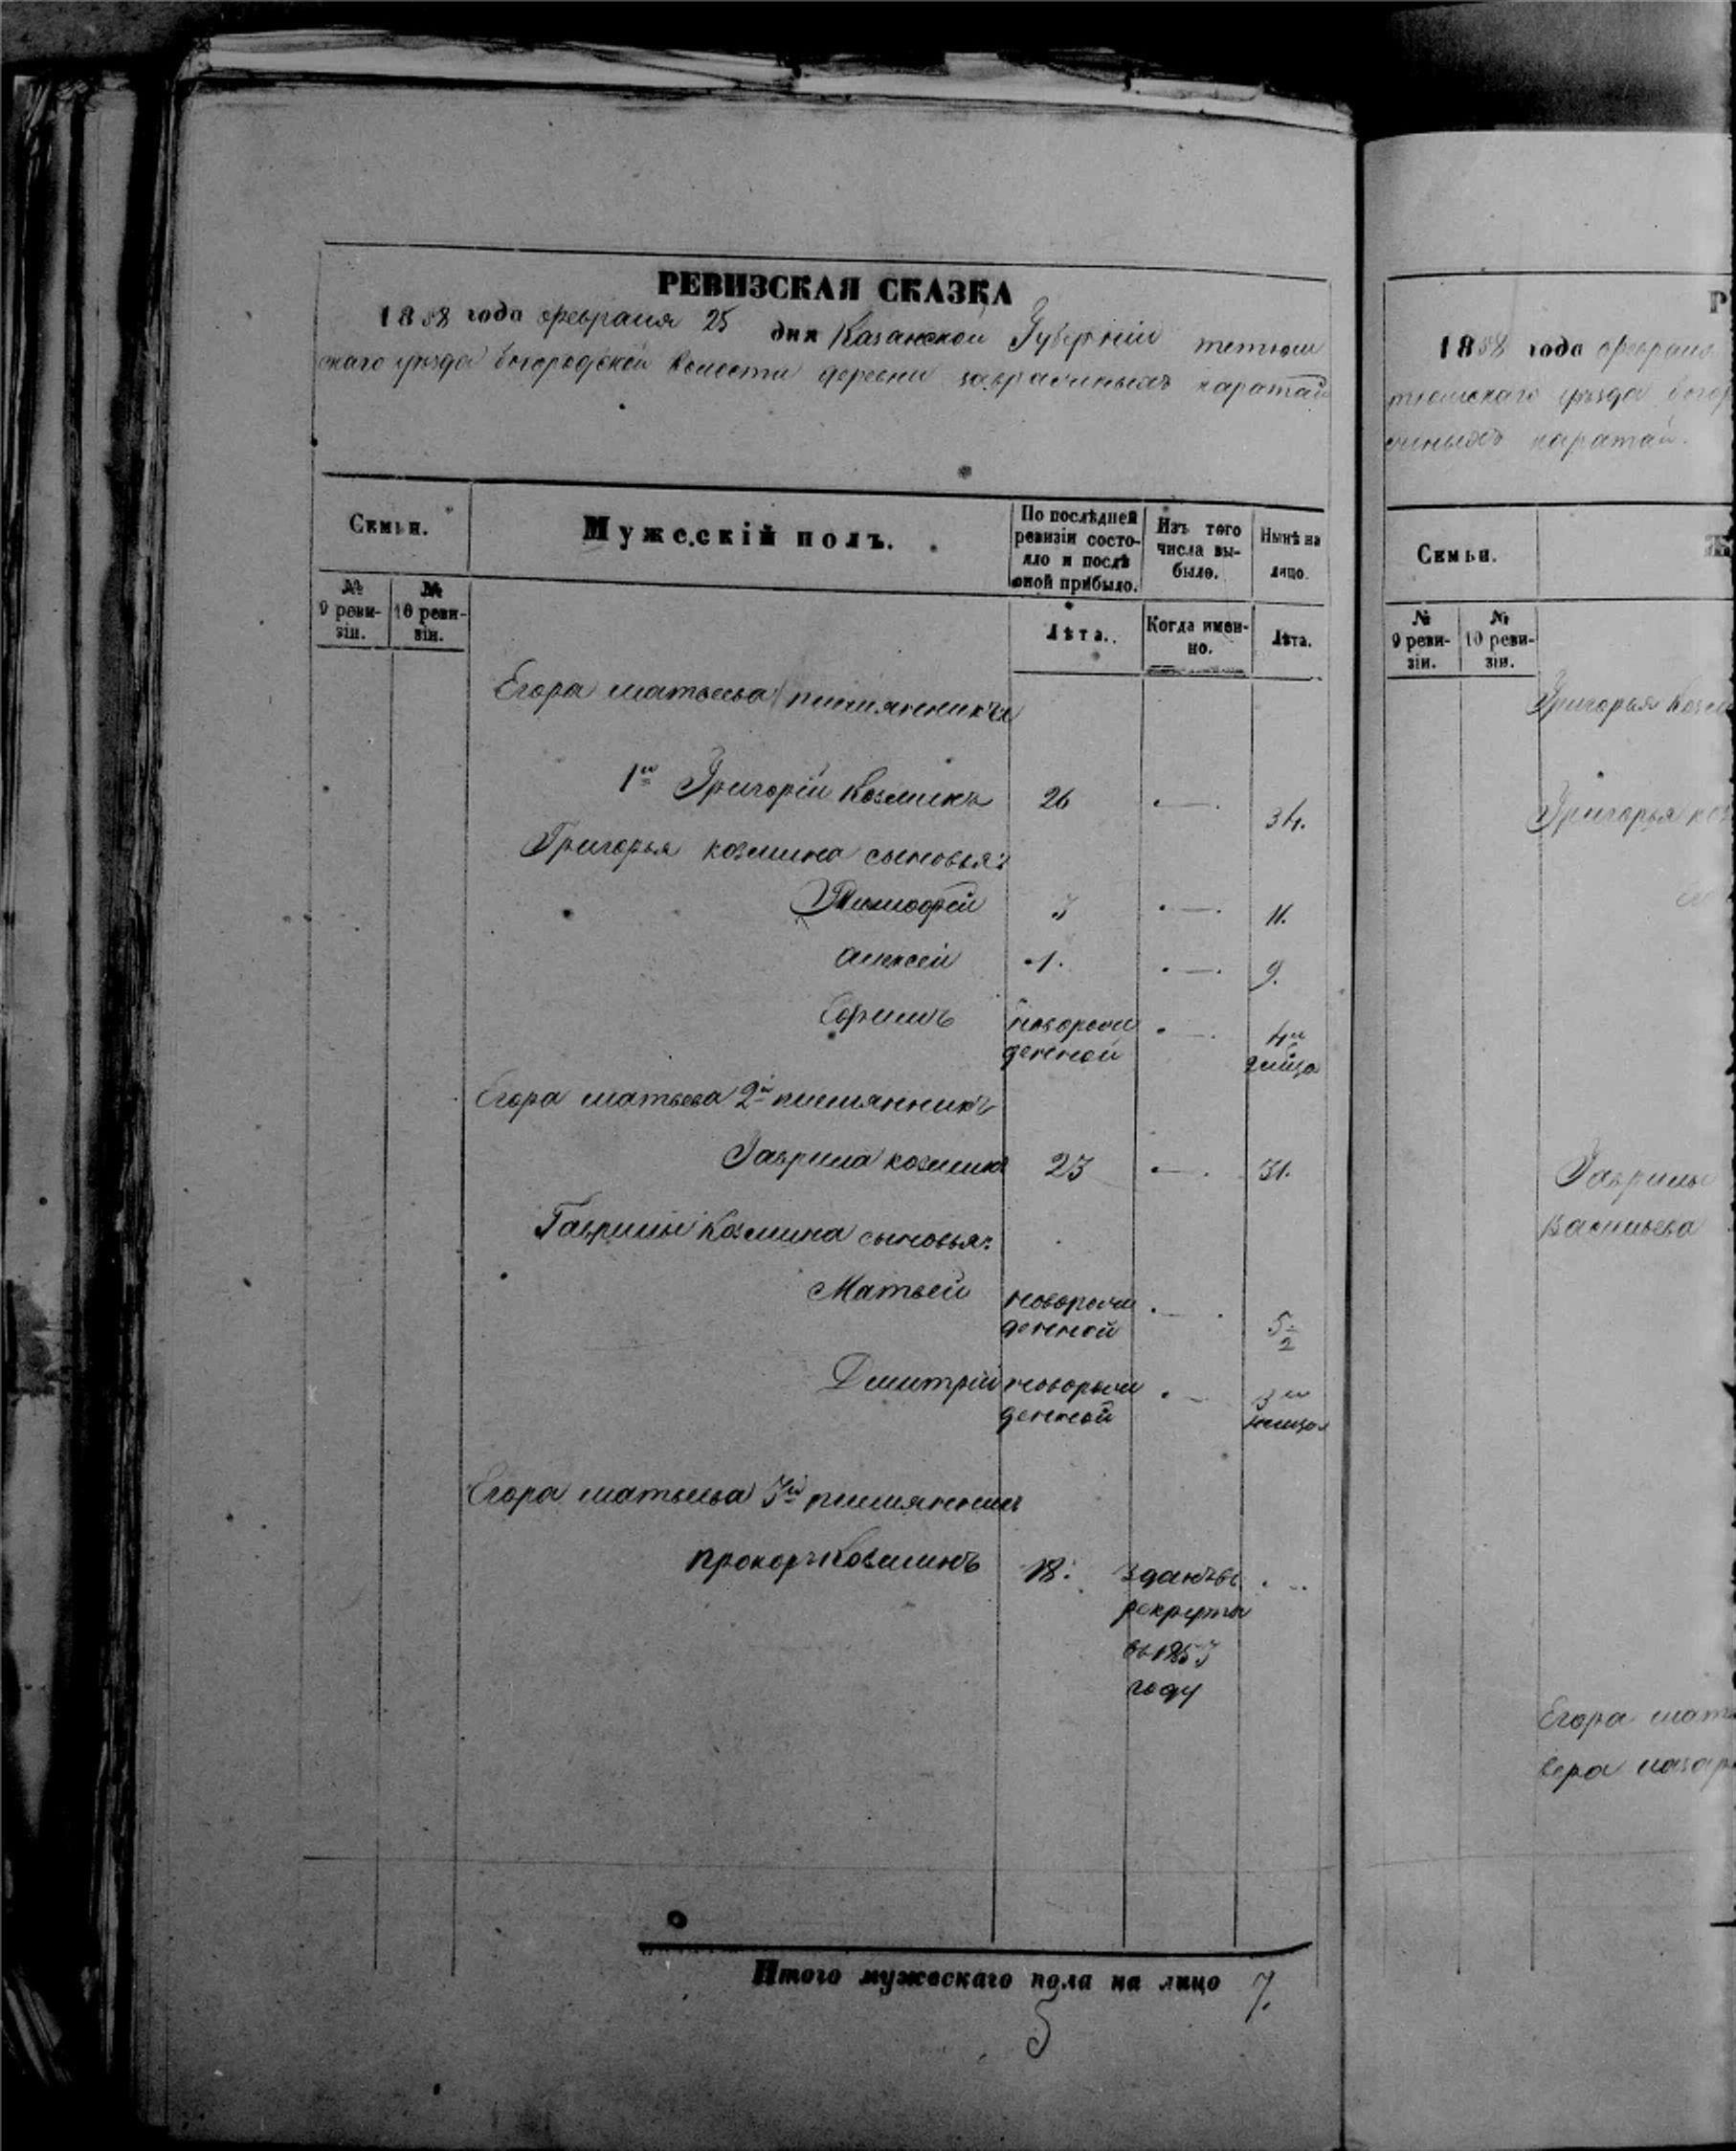 РЕВИЗСКАЯ СКАЗКА
1858 года февраля 25 дня Казанской Губерніи тетюш
скаго уѣзда богородской волости деревни заврасиныхъ каратай
Семьи.
Мужескій полъ.
По послѣдней ревизіи состояло и послѣ оной прибыло.
Изъ того числа выбыло.
Нынѣ на лицо.
№ 9 ревизіи.
№ 10 ревизіи.
Лѣта.
Когда именно.
Лѣта.
Егора матвеева племянники
1й Григорій Козминъ 26 34.
Григорья козмина сыновья:
Тимофей 3 11.
алексей 1. 9.
Ефимъ новорож
денной
Егора матвеева 2й племянникъ
Гаврила козминъ 23 31.
Гаврилы Козмина сыновья:
Матвей новорож 5½
денной
Дмитрій новорож
денной
Егора матвеева 3й племянникъ
прокопъ Козминъ 18. зданъ въ
рекруты
въ 1853
году
Итого мужескаго пола на лицо 7.
5
Р
1858 года феврал
тюшскаго уѣзда богор
синыхъ каратай.
Семьи.
Ж
№ 9 ревизіи.
№ 10 ревизіи.
Григорья Козм
Григорья коз
Гаврилы
Васильева
Егора матв
вера назар